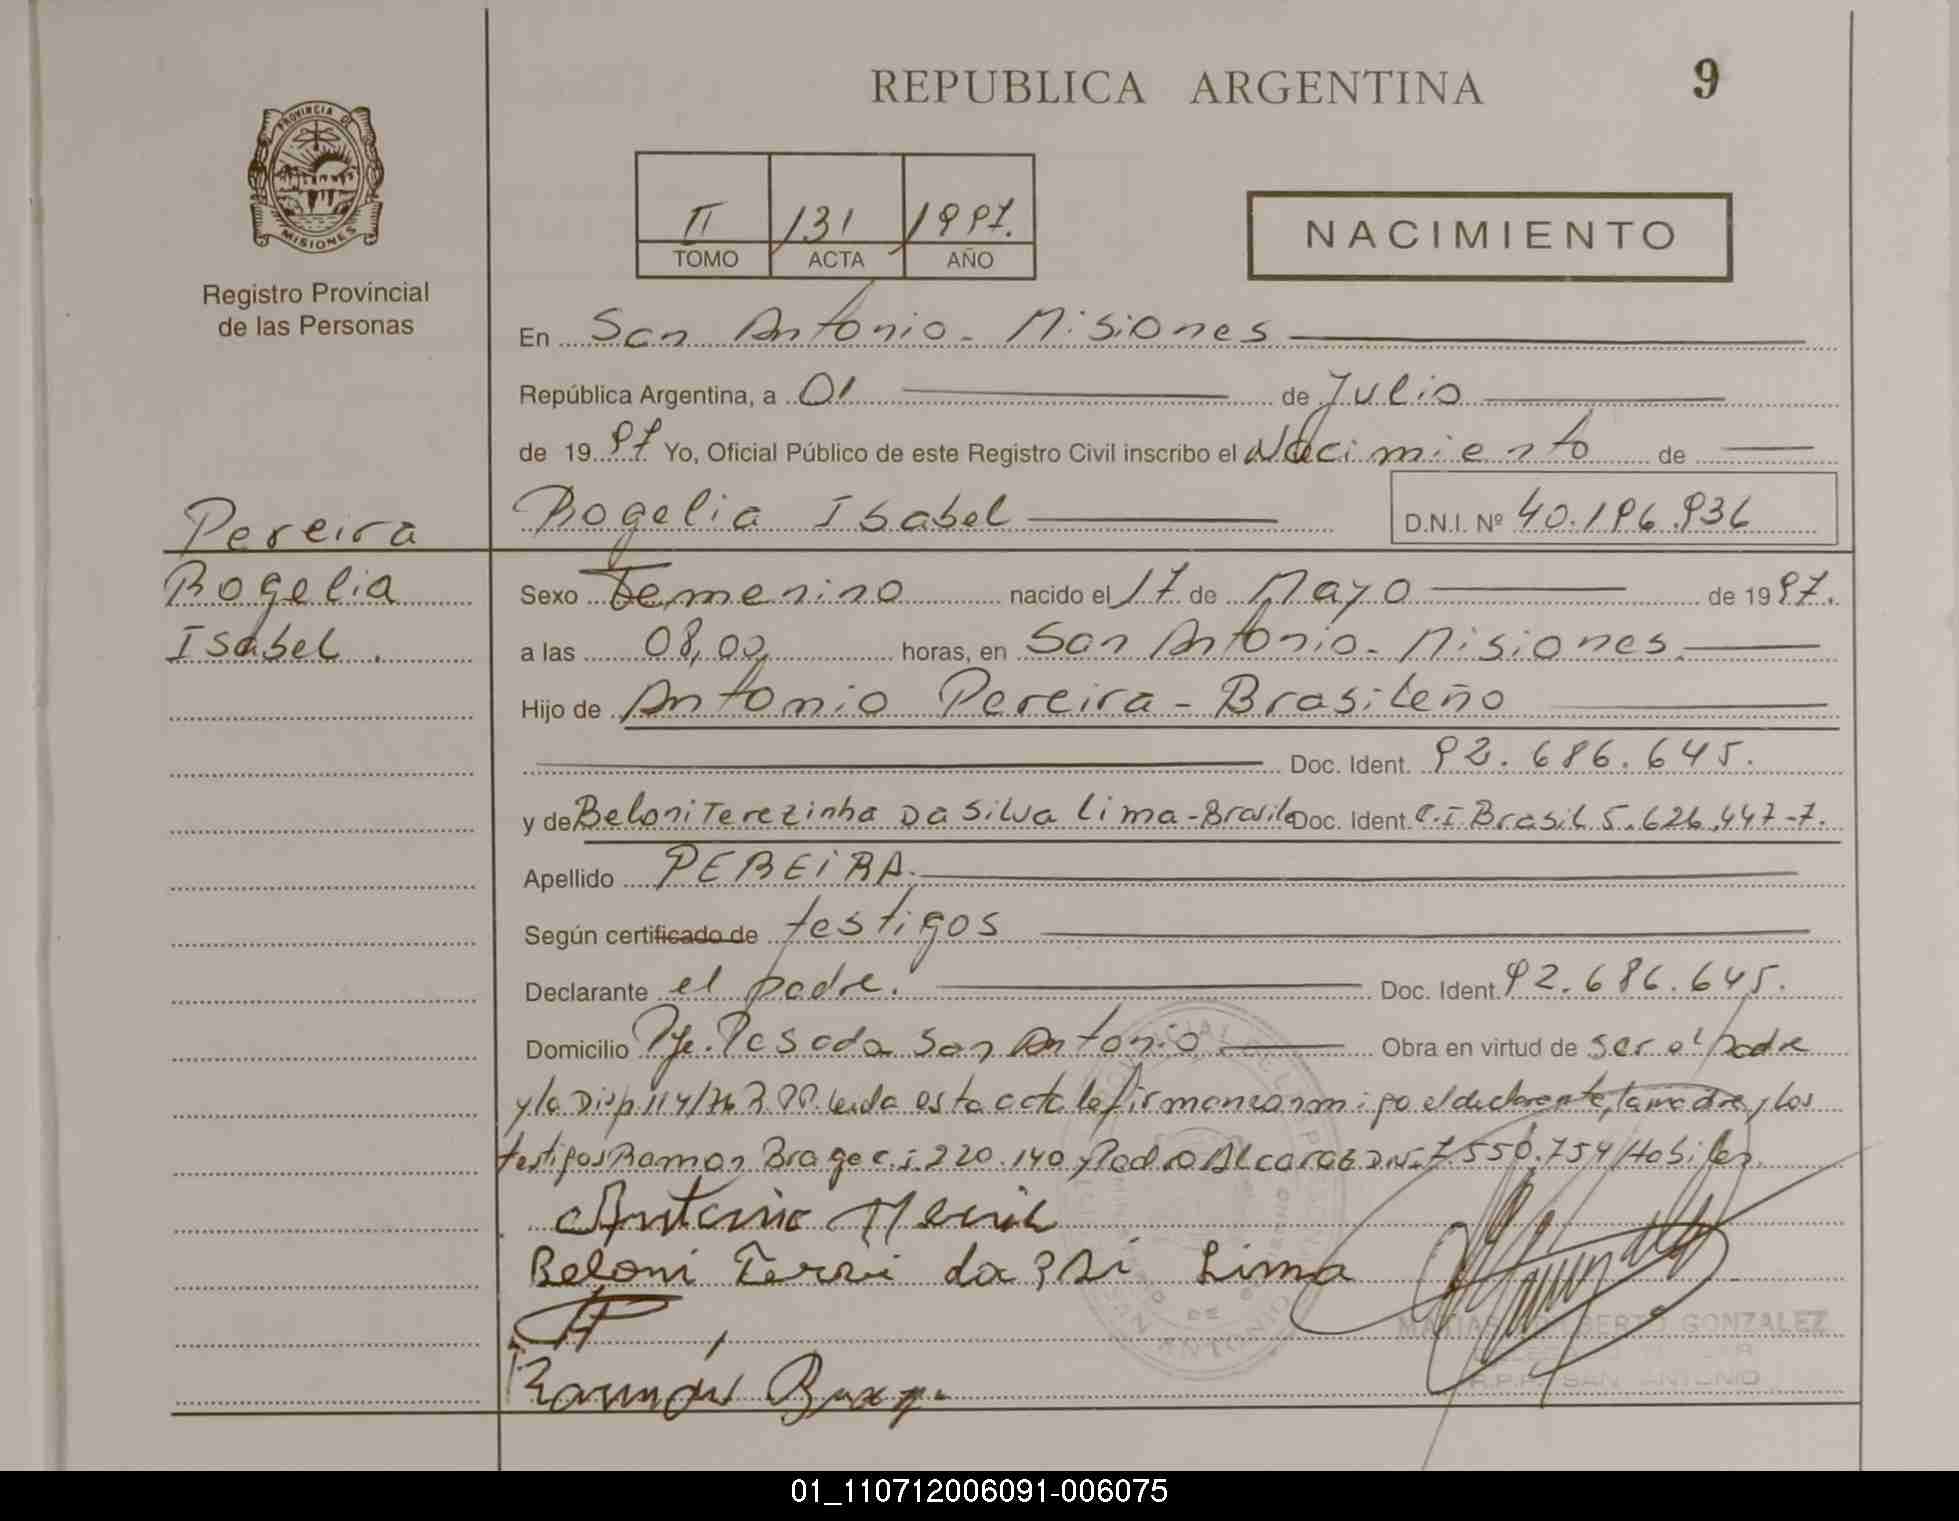 REPUBLICA ARGENTINA
9
PROVINCIA DE
MISIONES
Registro Provincial
de las Personas
II 131 1997.
TOMO ACTA AÑO
NACIMIENTO
En San Antonio - Misiones
República Argentina, a 01 de Julio
de 1997 Yo, Oficial Público de este Registro Civil inscribo el Nacimiento de
Pereira
Rogelia
Isabel.
Rogelia Isabel D.N.I. Nº 40.196.936
Sexo Femenino nacido el 17 de Mayo de 1997.
a las 08,00 horas, en San Antonio - Misiones.
Hijo de Antonio Pereira - Brasileño
Doc. Ident. 92.686.645.
y de Beloni Terezinha Da Silva Lima - Brasile Doc. Ident. C.I Brasil 5.626.447-7.
Apellido PEREIRA.
Según certificado de testigos
Declarante el padre. Doc. Ident. 92.686.645.
Domicilio Pje. Posada San Antonio. Obra en virtud de ser el padre
y la Disp. 114/76 Leida esta acta la firman conmigo el declarante, la madre, y los
testigos Ramon Braga c.i. 220.140 y Pedro Alcaraz DNI 7.550.754 Habiles
Antonio
Beloni da Lima
Ramon
MATIAS GONZALEZ
R.P.P. SAN ANTONIO
01_110712006091-006075